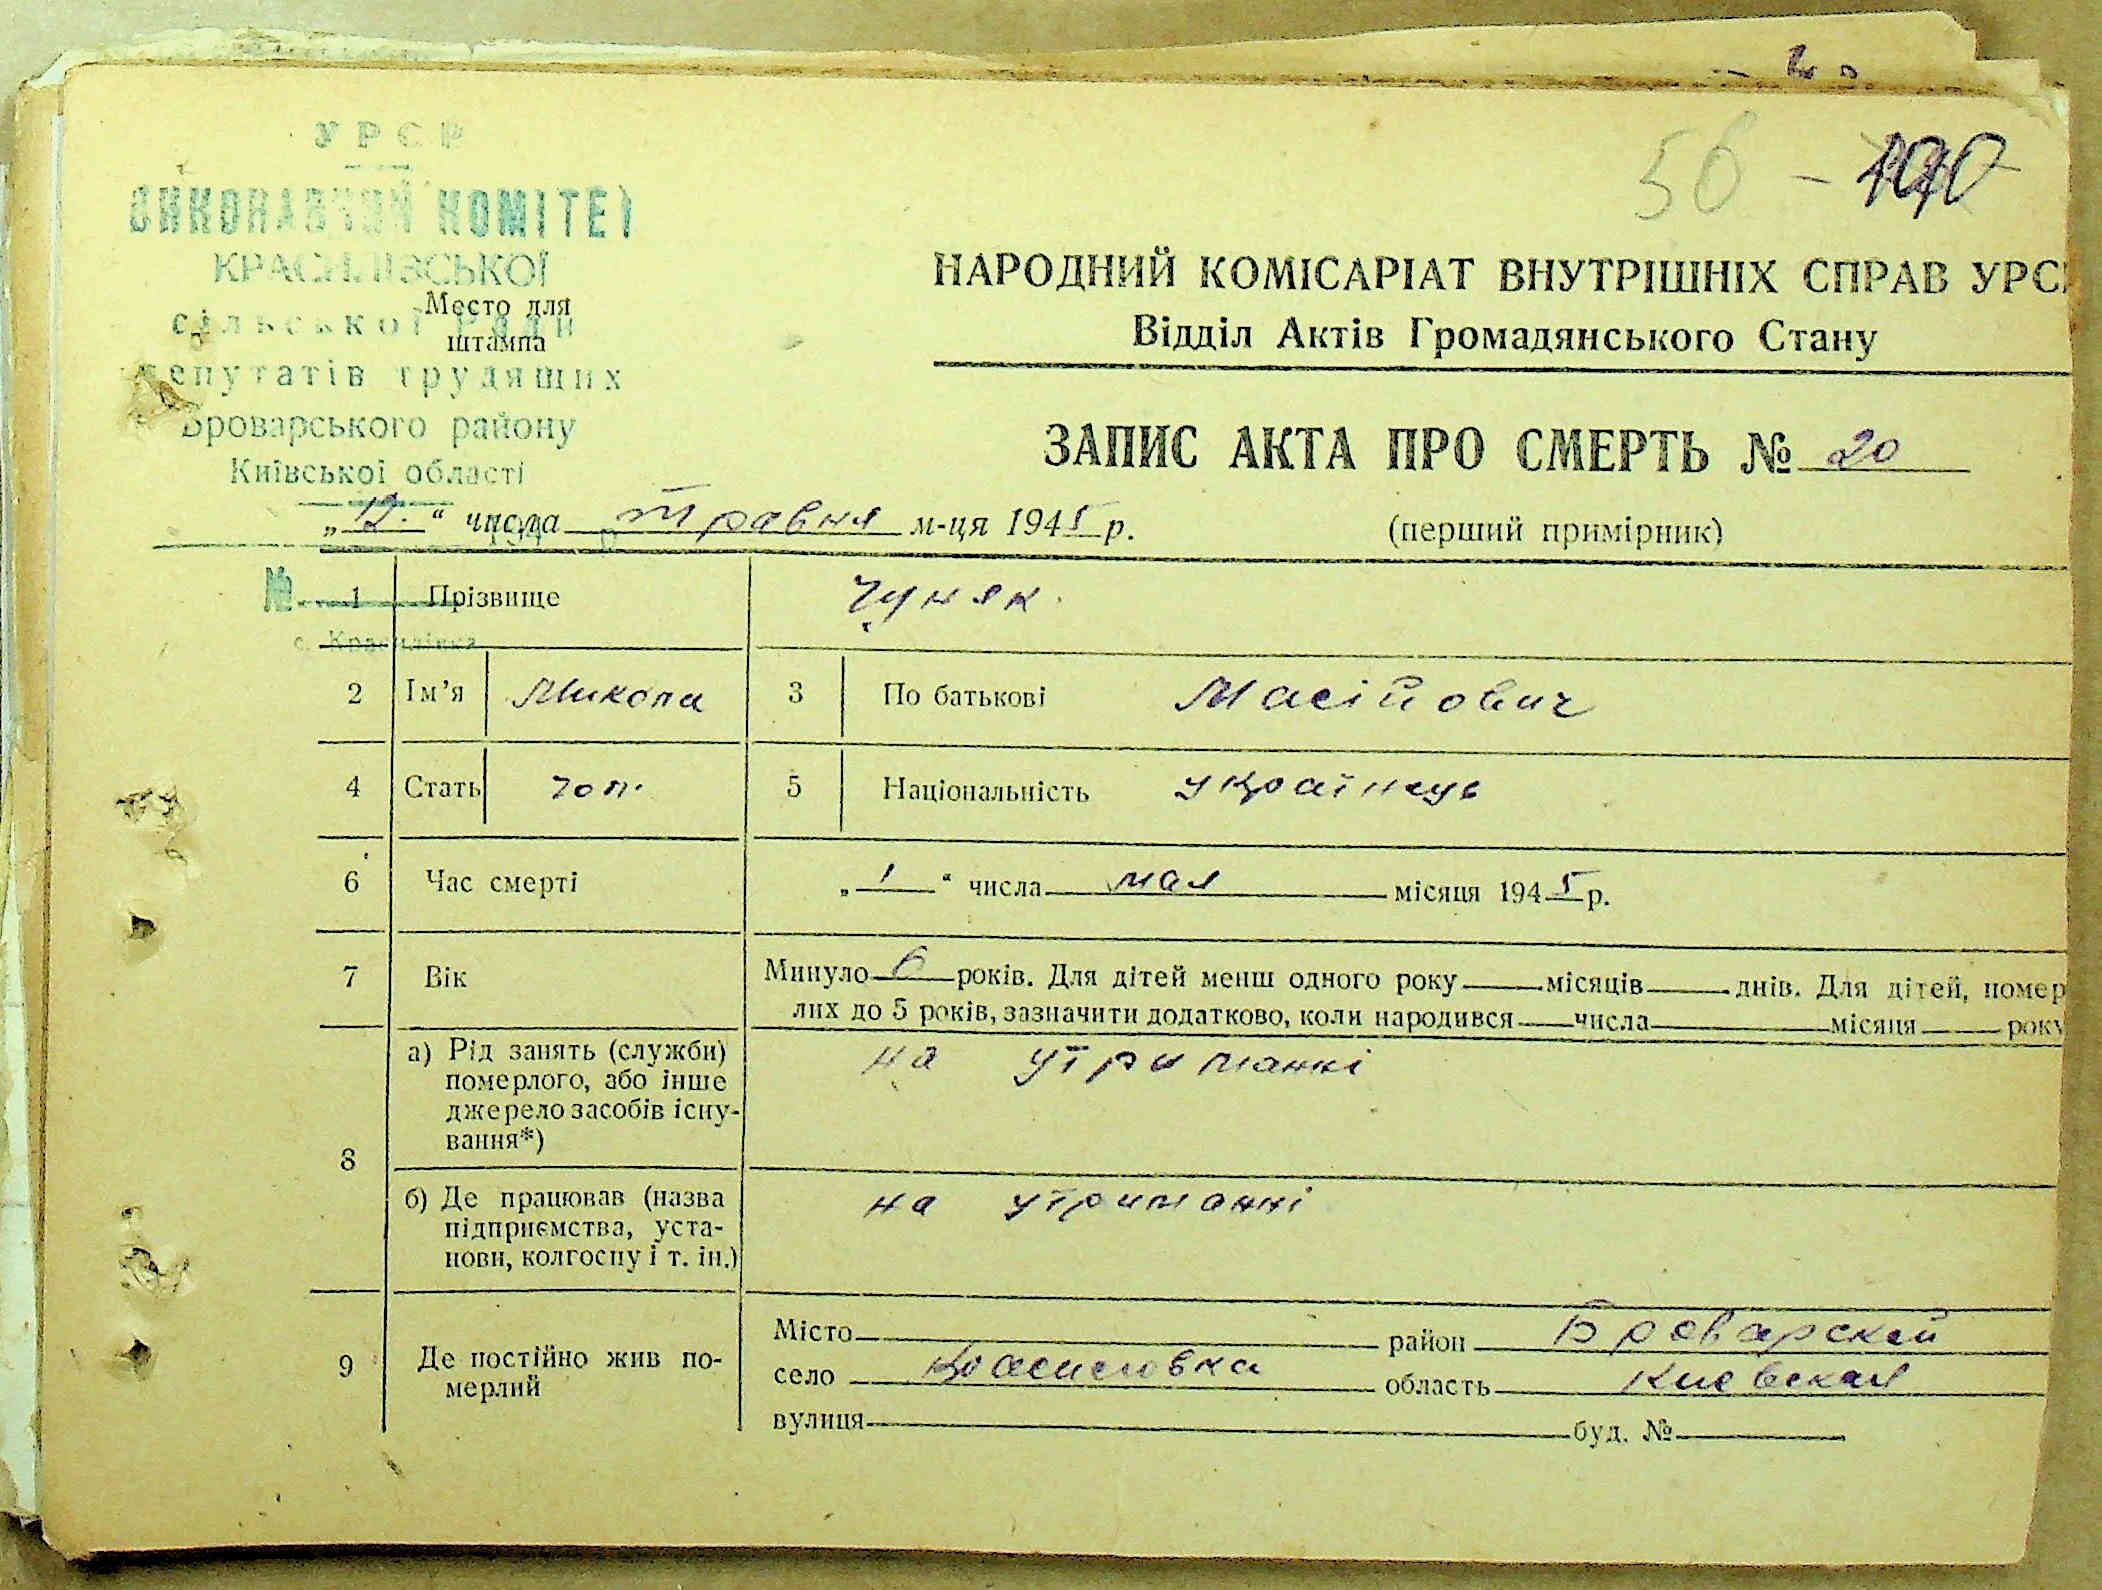 УРСР
ВИКОНАВЧИЙ КОМІТЕТ
КРАСИЛІВСЬКОЇ
сільської Ради
депутатів трудящих
Броварського району
Київської області
Место для
штампа
56 -
НАРОДНИЙ КОМІСАРІАТ ВНУТРІШНІХ СПРАВ УРС
Відділ Актів Громадянського Стану
ЗАПИС АКТА ПРО СМЕРТЬ № 20
„12.“ числа травня м-ця 1945 р.
(перший примірник)
№
с. Красилівка
1 Прізвище Чуняк.
2 Ім’я Микола 3 По батькові Масійович
4 Стать чол. 5 Національність українець
6 Час смерті „1“ числа мая місяця 1945 р.
7 Вік Минуло 6 років. Для дітей менш одного року місяців днів. Для дітей, помер
лих до 5 років, зазначити додатково, коли народився числа місяця року
8 а) Рід занять (служби) померлого, або інше джерело засобів існу-вання*) на утриманні
б) Де працював (назва підприємства, уста-нови, колгоспу і т. ін.) на утриманні
9 Де постійно жив по-мерлий
Місто район Броварский
село Красиловка область Киевская
вулиця буд. №